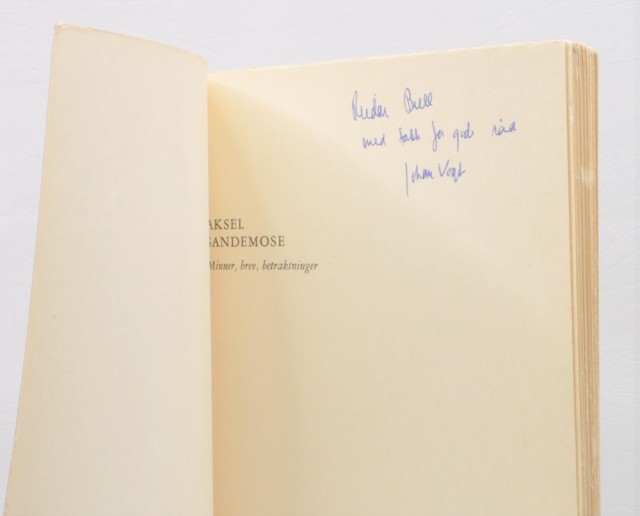 Reidar Brell
med takk for gode råd
Johan Vogt
AKSEL
SANDEMOSE
Minner, brev, betraktninger